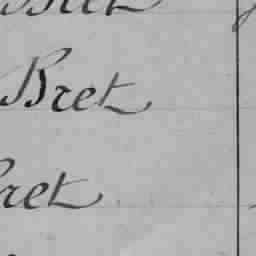 Bret
Bret